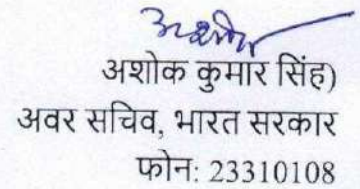 अशोक
अशोक कुमार सिंह)
अवर सचिव, भारत सरकार
फोन: 23310108